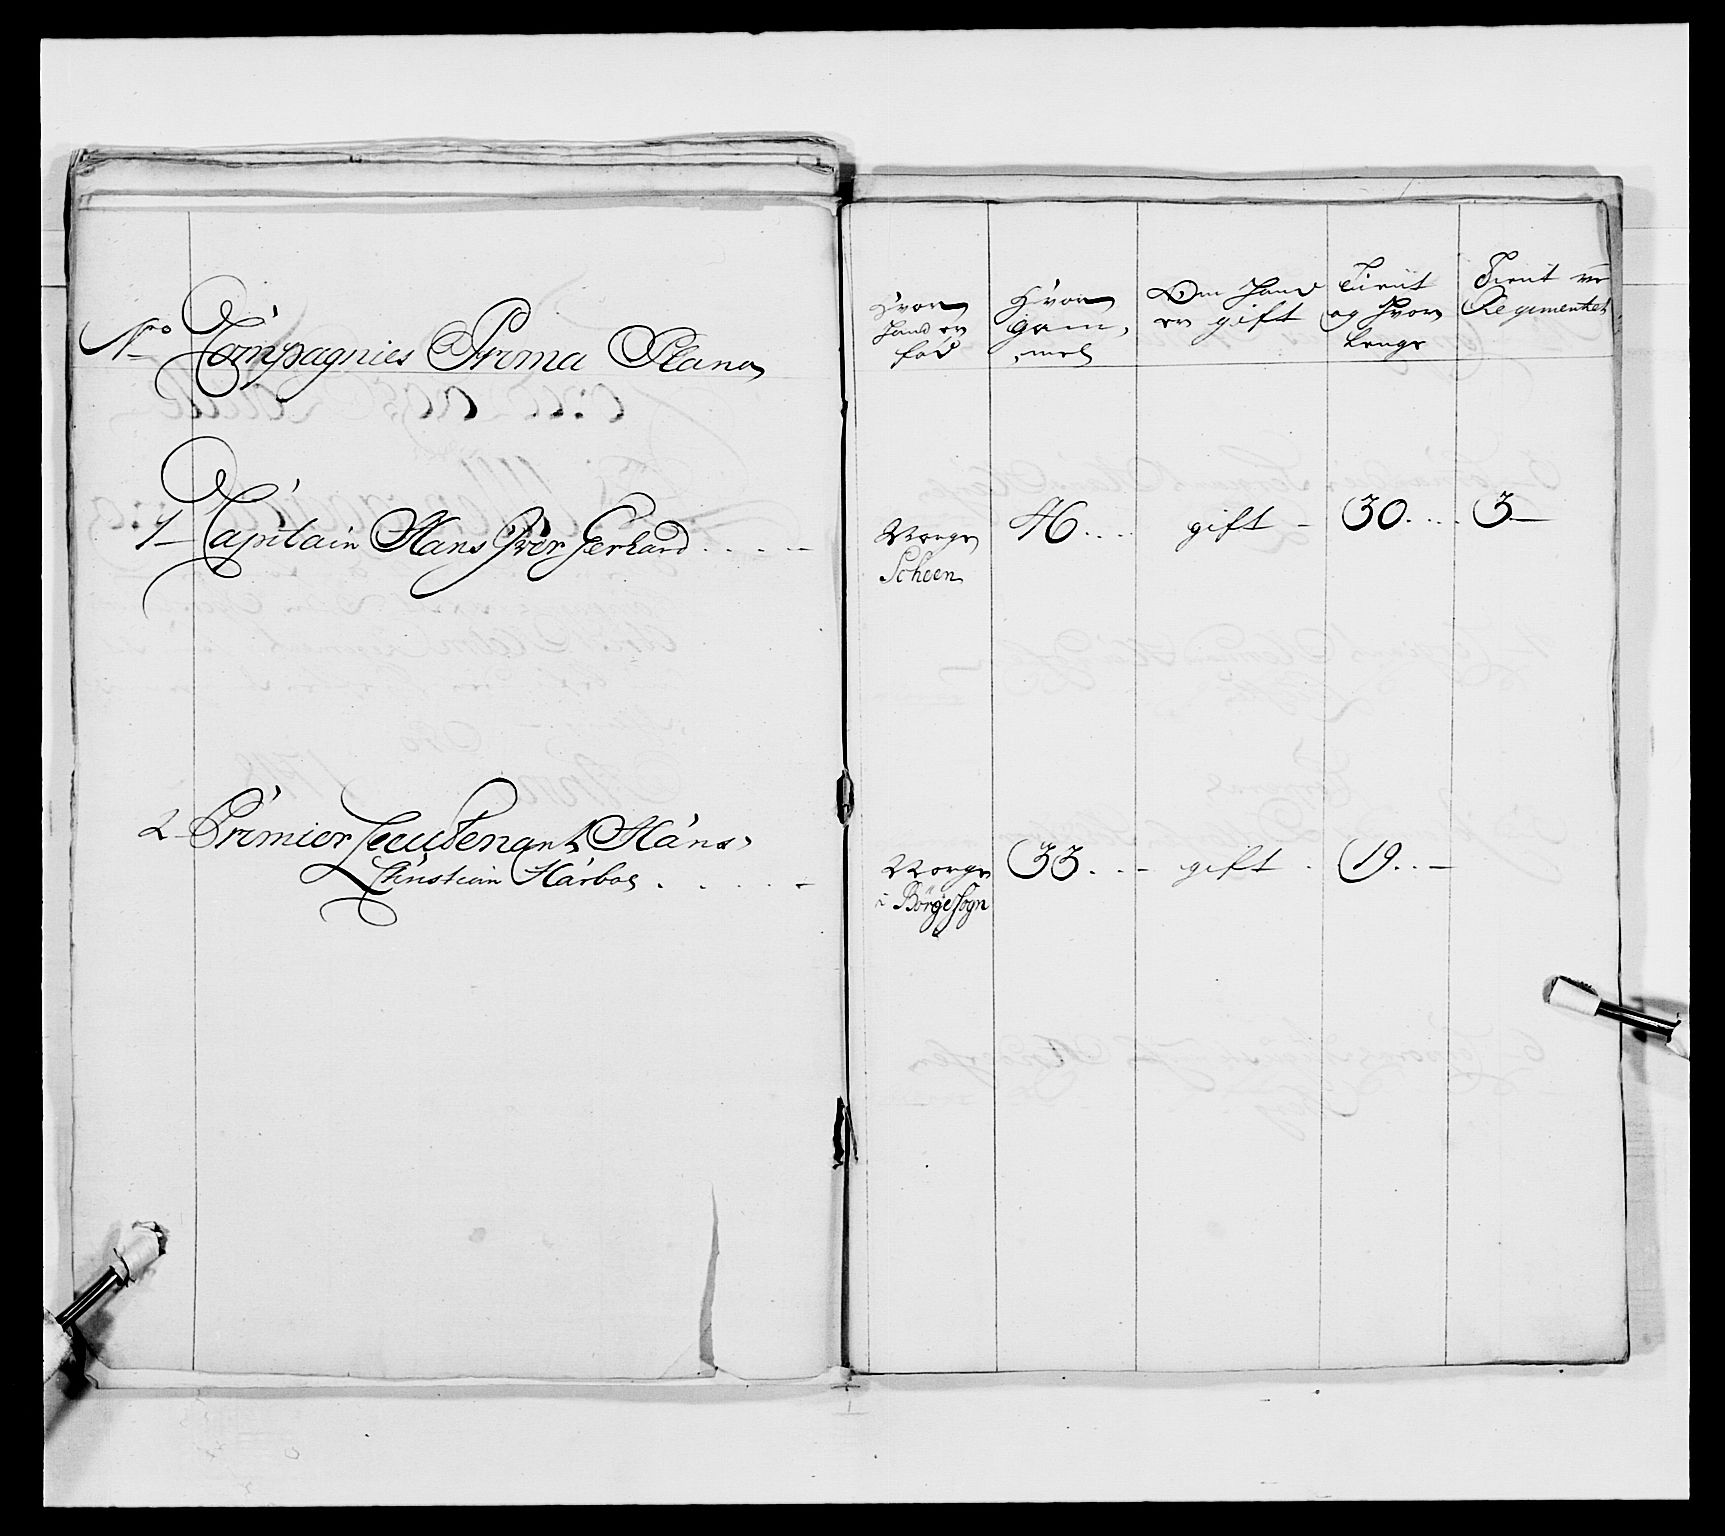 No Compagnies Prima Plana
Hvor
Hand er
föd
Hvor
gam¬
mel
Om Hand
er gift
Tient
og Hvor
Lenge
Tient ve
Regimentet
1 Capitain Hans Iver Gerhard
Norge
Scheen
46
gift
30
3
2 Primier Lieutenant Hans
Christian Harboe
Norge
i Börge Sogn
33
gift
19